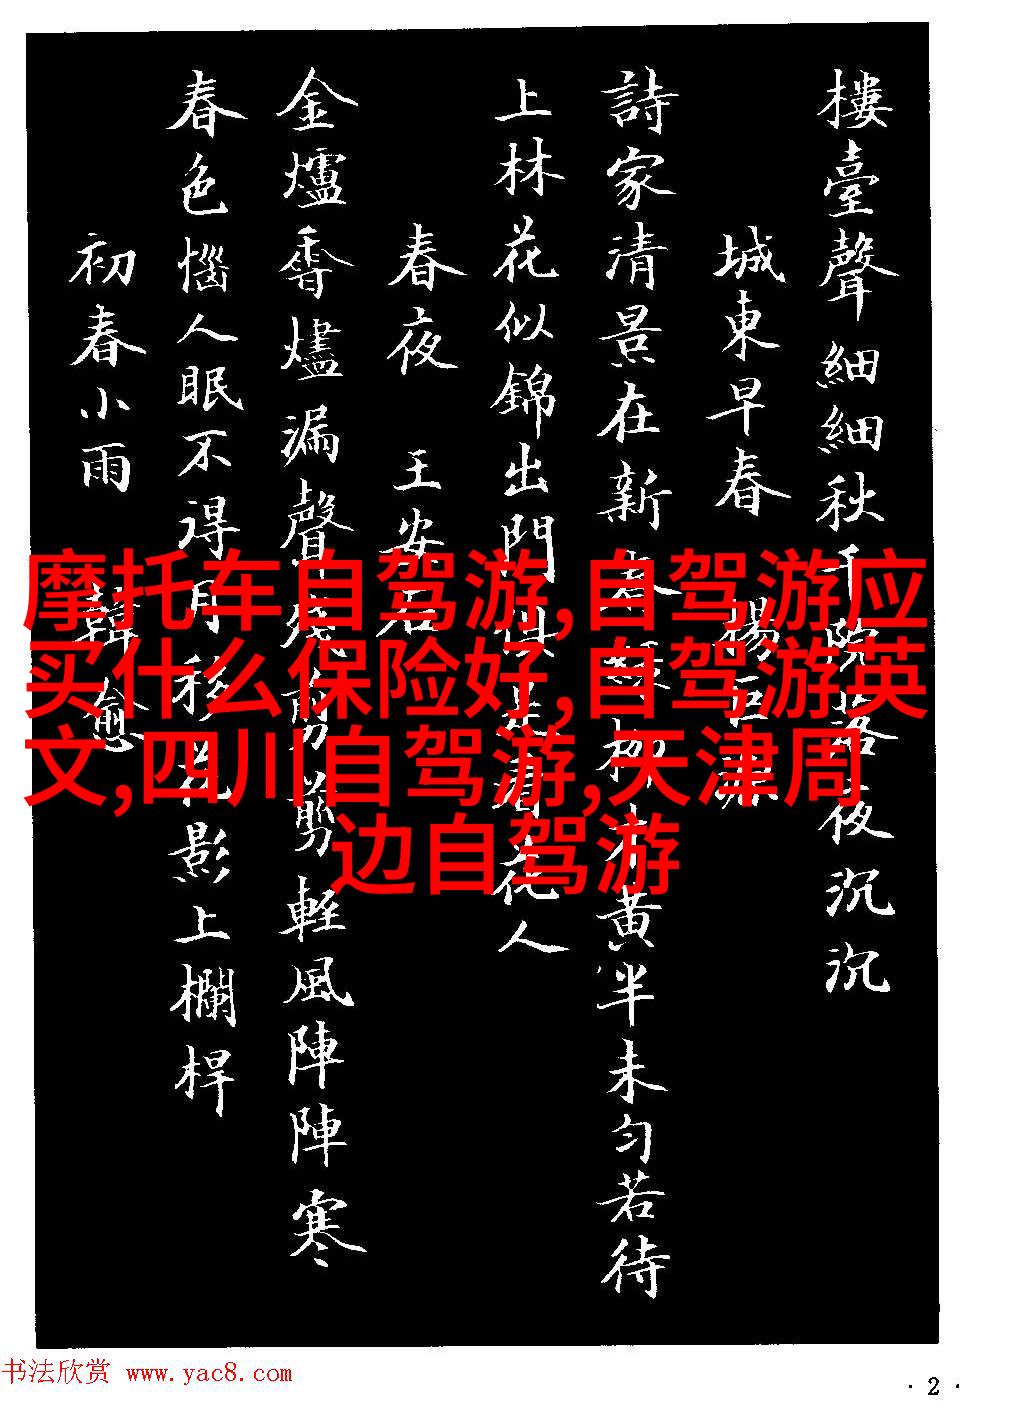 樓臺聲細細秋千院落夜沉沉
城東早春 楊巨源
詩家清景在新春綠柳才黃半未匀若待
上林花似錦出門俱是看花人
春夜 王安石
金爐香燼漏聲殘剪剪輕風陣陣寒
春色惱人眠不得月移花影上欄桿
初春小雨 韓愈
摩托车自驾游,自驾游应
买什么保险好,自驾游英
文,四川自驾游,天津周
边自驾游
书法欣赏 www.yac8.com
·2·